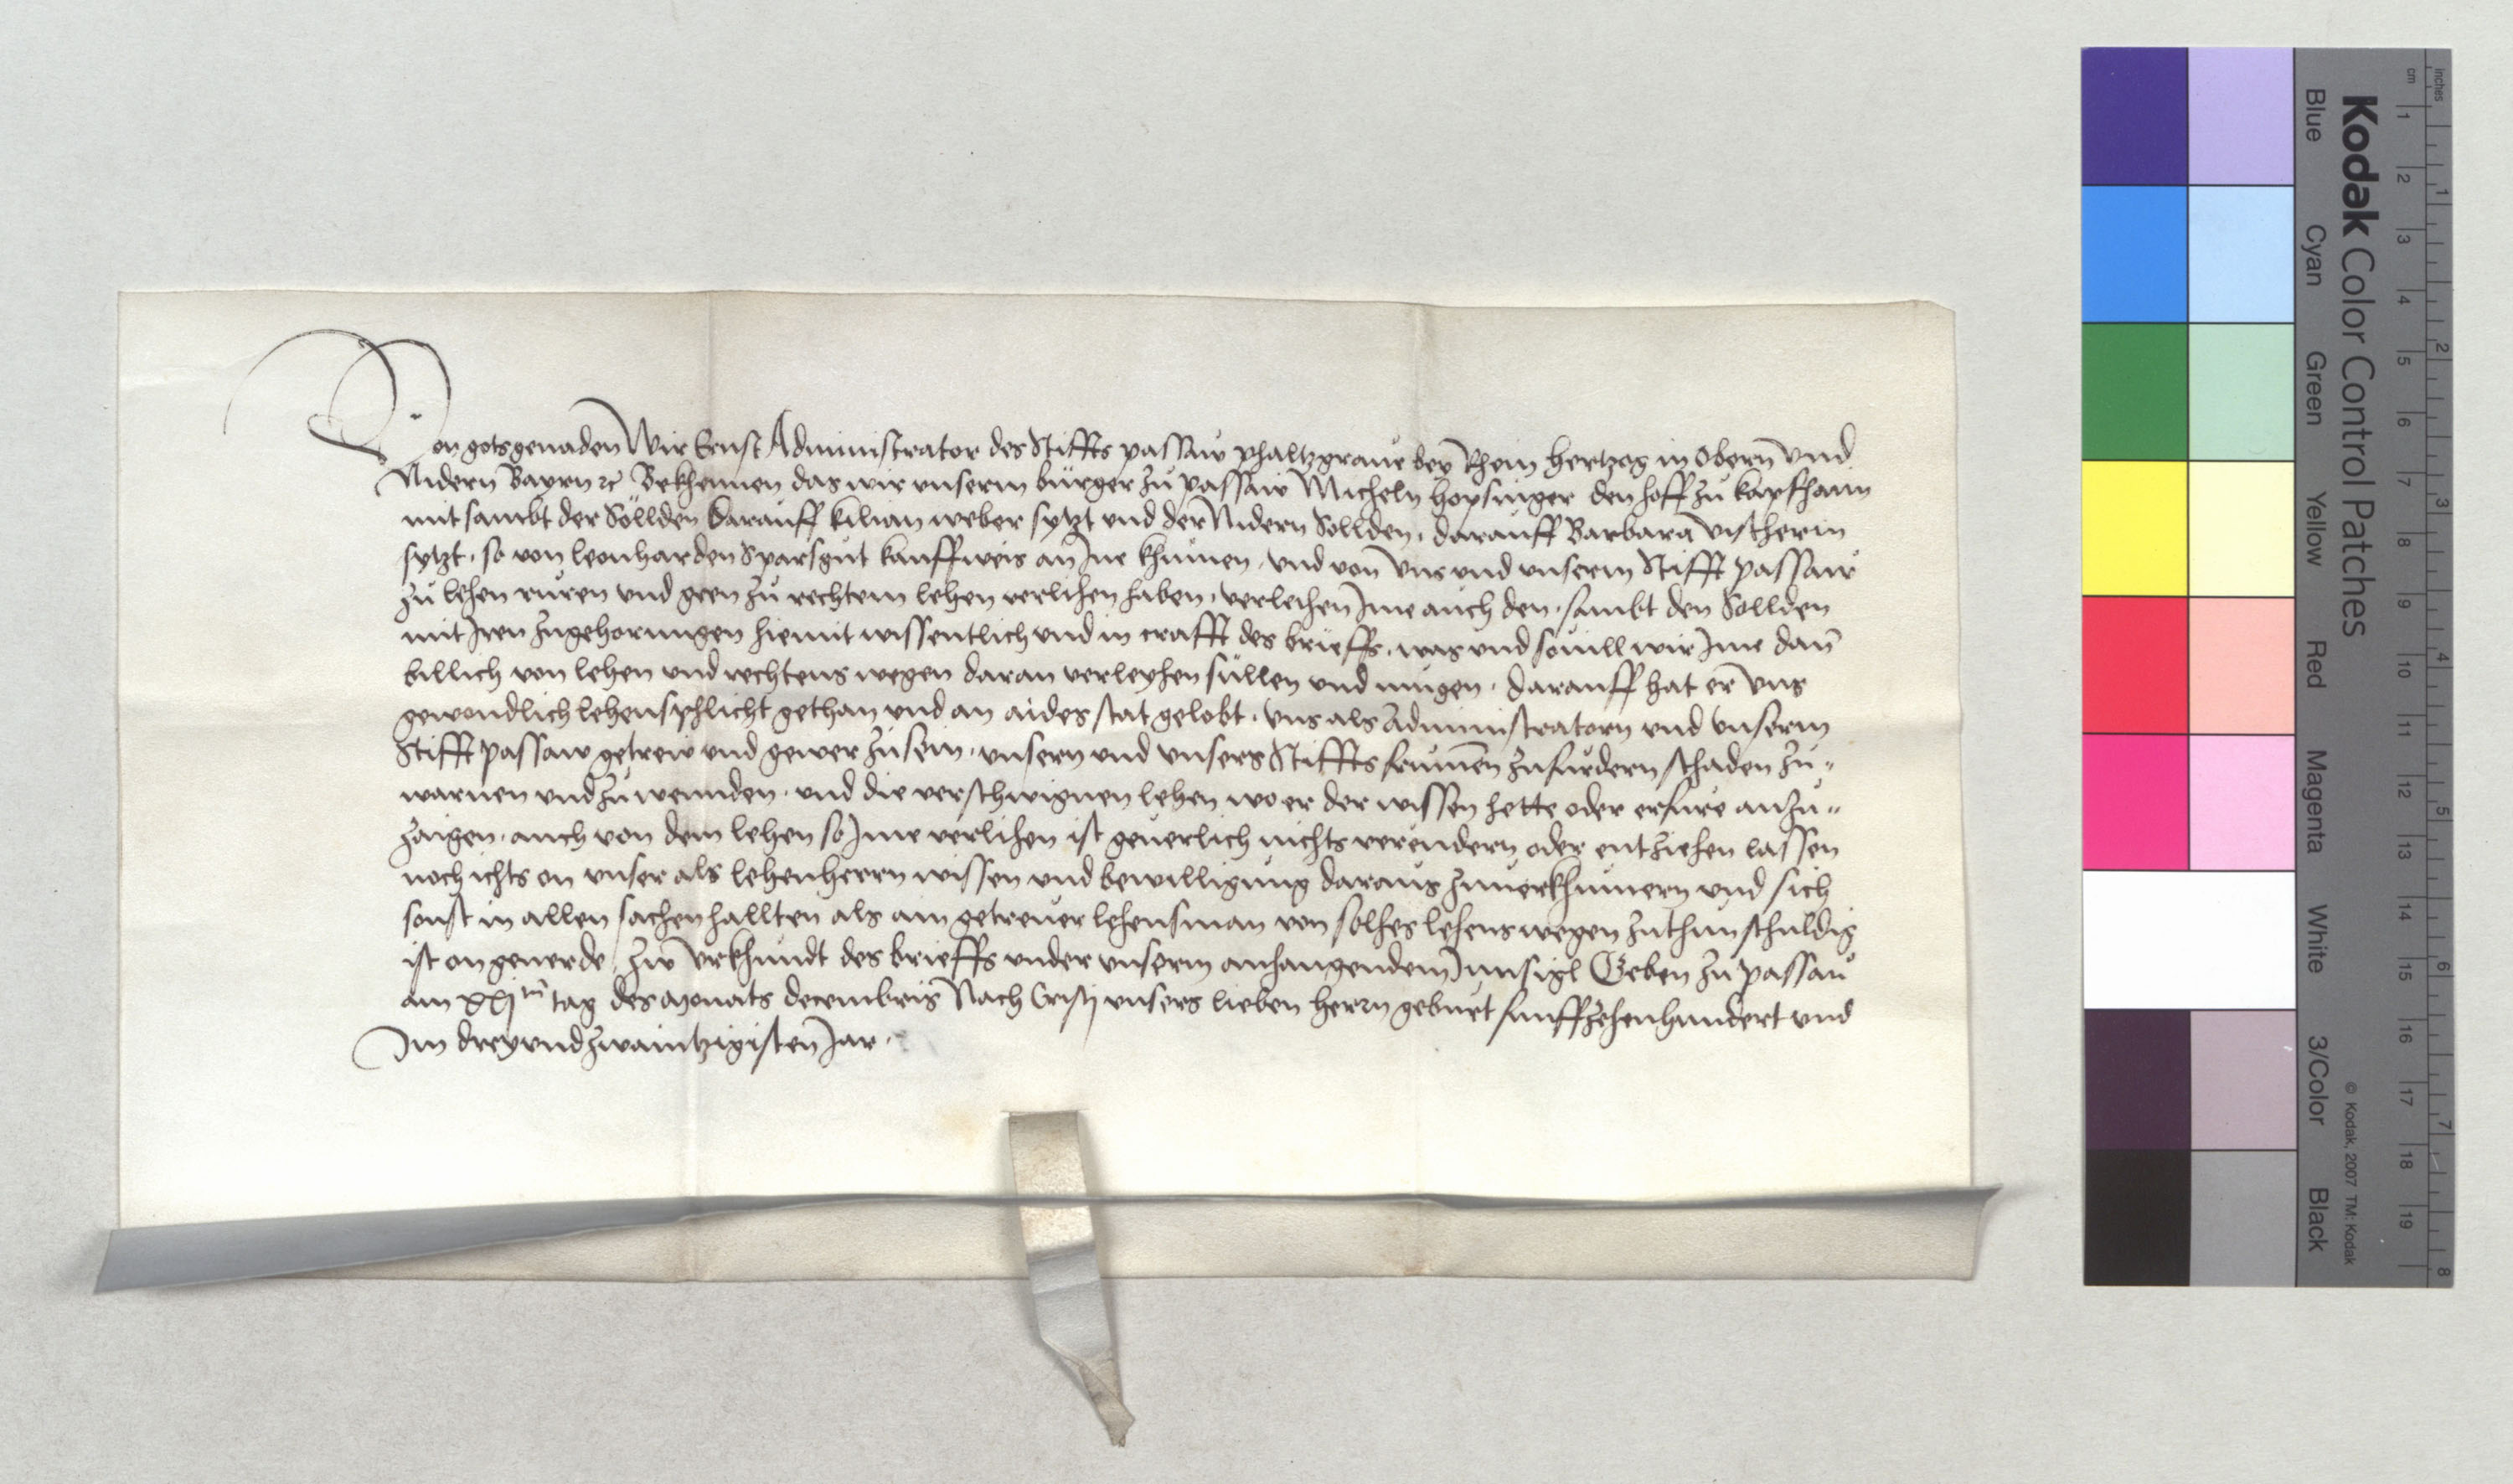 Von gotsgenaden Wir Ernst Administrator des Stiffts passaw phaltzgraue bey Rhein hertzog in Obern und
Nidern Bayrn ꝛc Bekhennen das wir unserm burger zu passaw Micheln hopfinger den hoff zu kapfham
mit sambt der Söllden darauff kilian weber sytzt und der Nidern Söllden, darauff Barbara vischerin
sytzt, so von leonharden Sparsgut kauffweis an Jne khumen, und von uns und unserm Stifft passaw
zu lehen ruren und geen zu rechtem lehen verlihen haben, verleihen Jme auch den, sambt den Söllden
mit Jren zugehorungen hiemit wissentlich und in crafft des brieffs, was und souill wir Jme dan̄
billich von lehen und rechtens wegen daran verleyhen sullen und mugen, darauff hat er uns
gewondlich lehenspflicht gethan und an aides stat gelobt, uns als Administratorn und unserm
Stifft passaw getrew und gewer zusein, unsern und unsers Stiffts frumen̄ zufurdern schaden zu-
warnen und zuwennden, und die verschwignen lehen wo er der wissen hette oder erfure anzu-
zaigen, auch von dem lehen so Jme verlihen ist geuerlich nichts verendern oder entziehen lassen
noch ichts on unser als lehenherrn wissen und bewilligung daraus zuuerkhumern und sich
sonst in allen sachen hallten als ain getreuer lehensman von solhes lehens wegen zuthun schuldig
ist on geuerde, Zw Urkhundt des brieffs under unserm anhangendem Jnnsigl Geben zu passaw
am xxj tag des Monats decembris Nach Cristj unsers lieben herrn geburt funffzehenhundert und
Jm dreyundzwaintzigisten Jar.
Kodak Color Control Patches
Blue Cyan Green Yellow Red Magenta White 3/Color Black
© Kodak, 2007 TM: Kodak
inches 1 2 3 4 5 6 7 8
cm 1 2 3 4 5 6 7 8 9 10 11 12 13 14 15 16 17 18 19